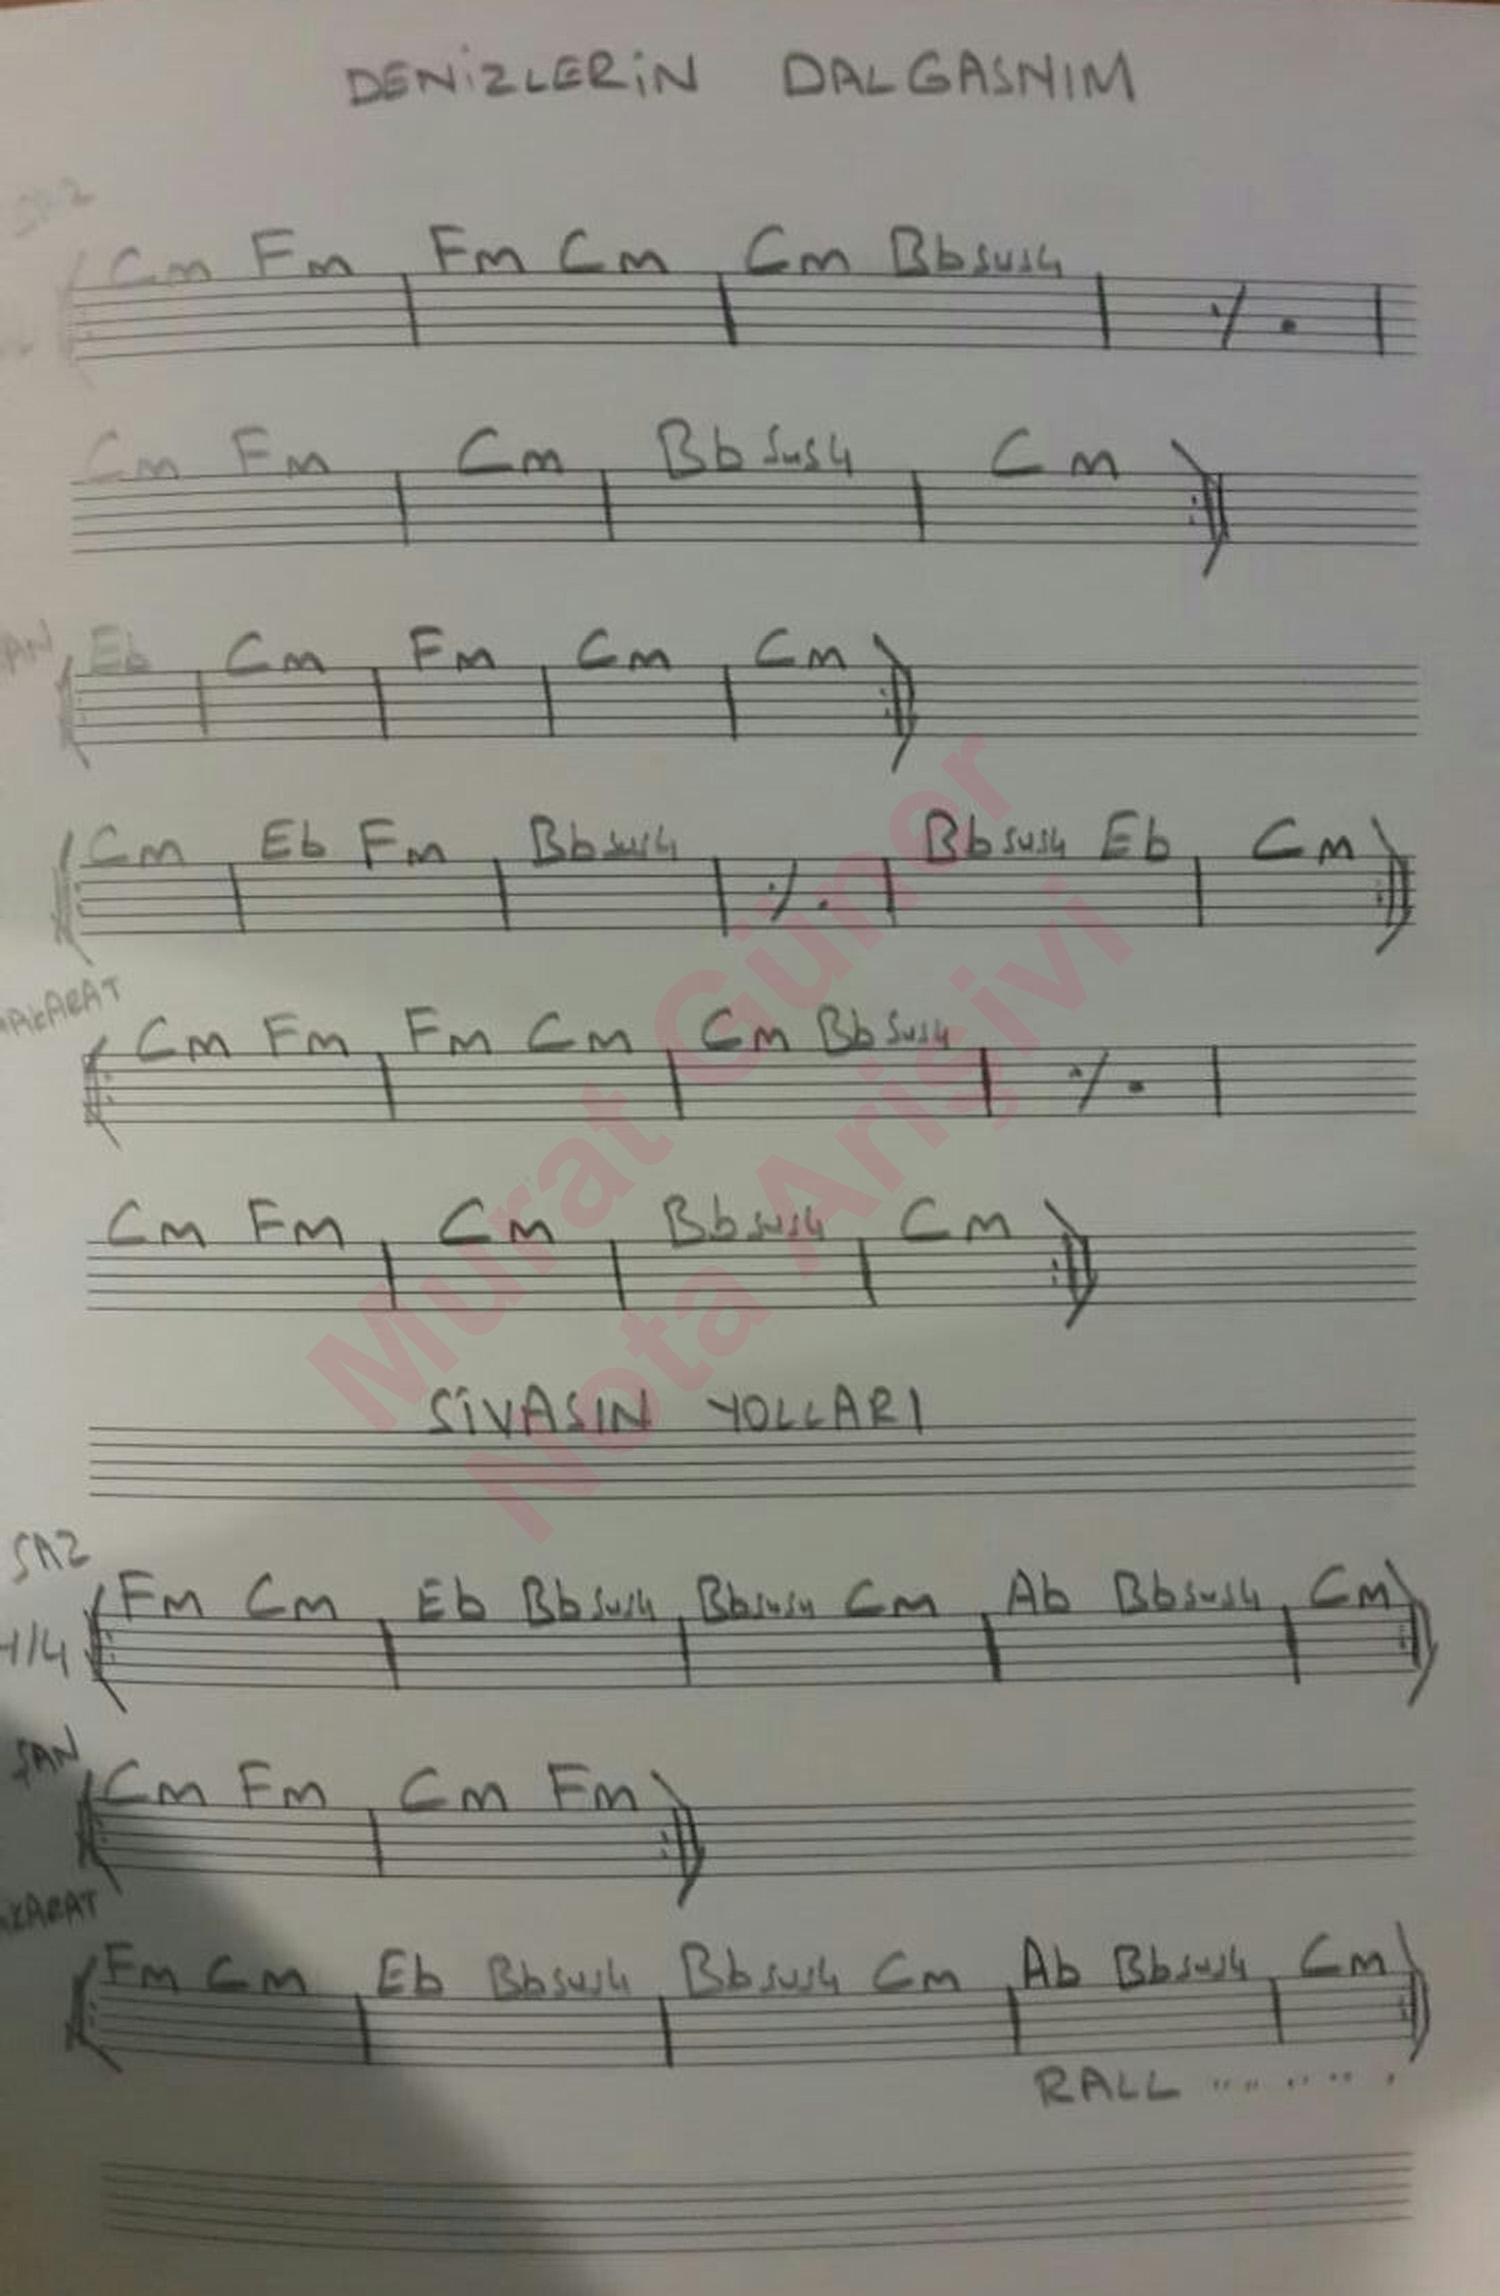 DENİZLERİN DALGASNIM
SAZ
Cm Fm Fm Cm Cm Bbsus4
Cm Fm Cm Bbsus4 Cm
Eb Cm Fm Cm Cm
Cm Eb Fm Bbsus4 Bbsus4 Eb Cm
AKARAT
Cm Fm Fm Cm Cm Bbsus4
Cm Fm Cm Bbsus4 Cm
SİVASIN YOLLARI
SAZ
Fm Cm Eb Bbsus4 Bbsus4 Cm Ab Bbsus4 Cm
4/4
ŞAN
Cm Fm Cm Fm
KARAT
Fm Cm Eb Bbsus4 Bbsus4 Cm Ab Bbsus4 Cm
RALL ..........
Murat Güner
Nota Arişivi